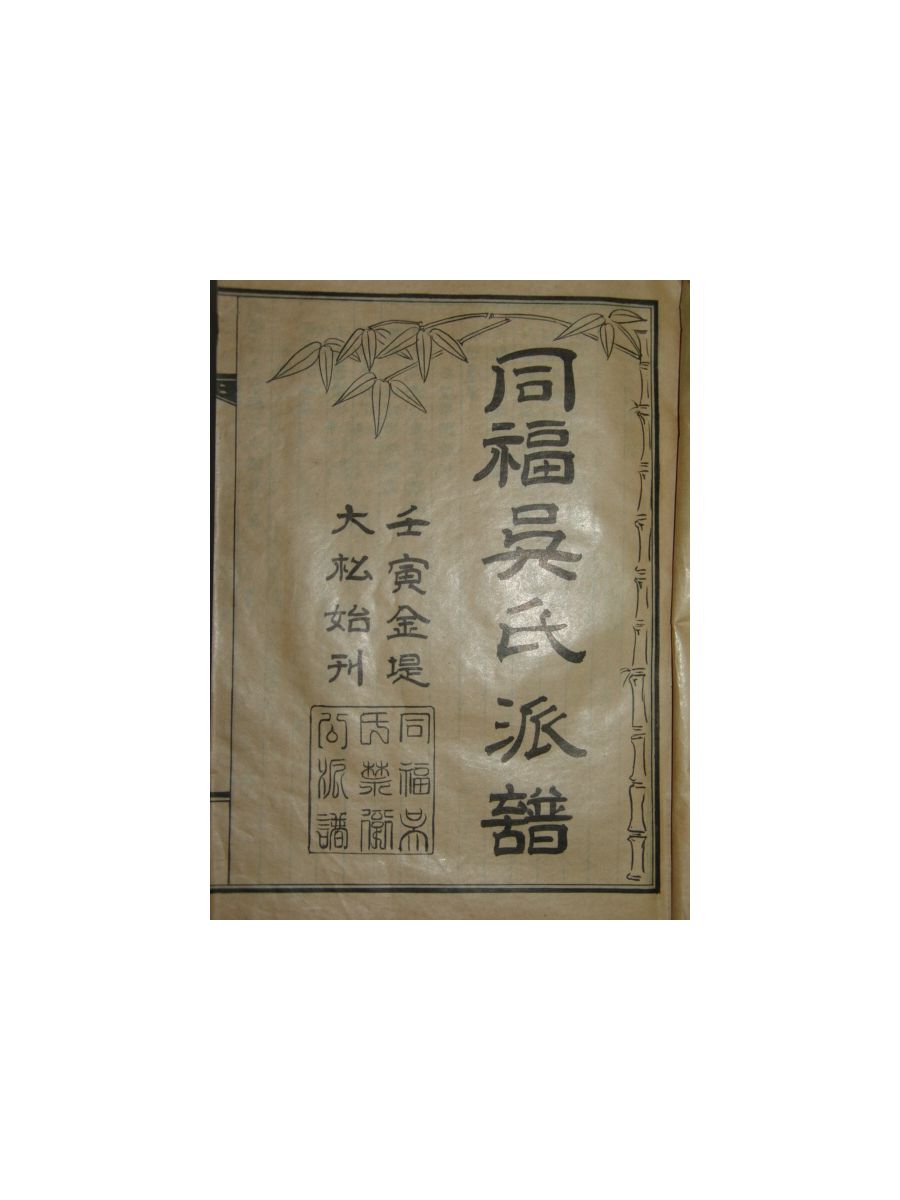 同福吳氏派譜
壬寅金堤
大松始刊
同福吳
氏禁衛
公派譜